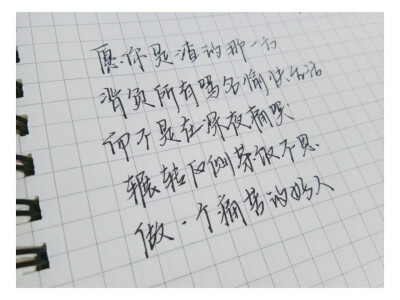 愿你是渣的那一方
背负所有骂名愉快生活
而不是在深夜痛哭
辗转反侧茶饭不思
做一个痛苦的好人